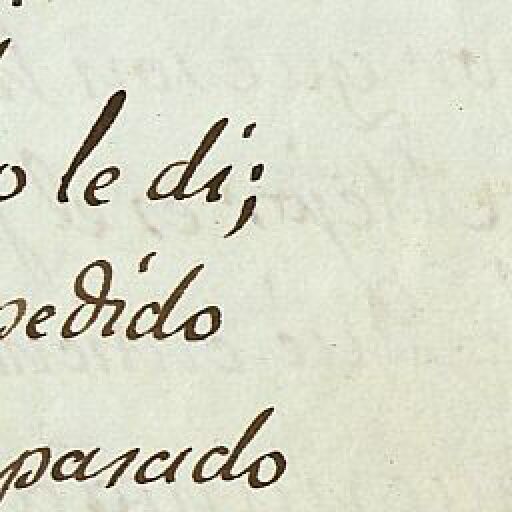 o le di;
pedido
pasado